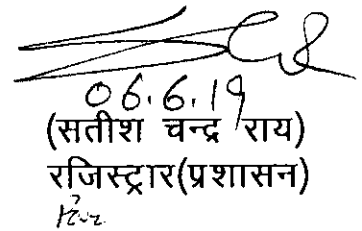 06.6.19
(सतीश चन्द्र राय)
रजिस्ट्रार(प्रशासन)